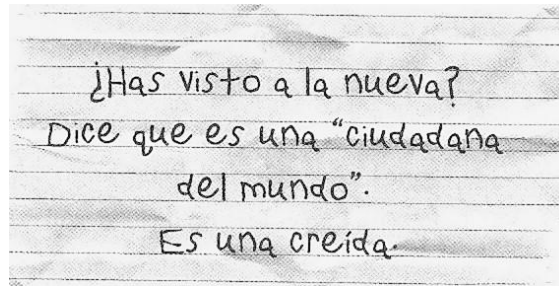 ¿Has visto a la nueva?
Dice que es una “ciudadana
del mundo”.
Es una creída.